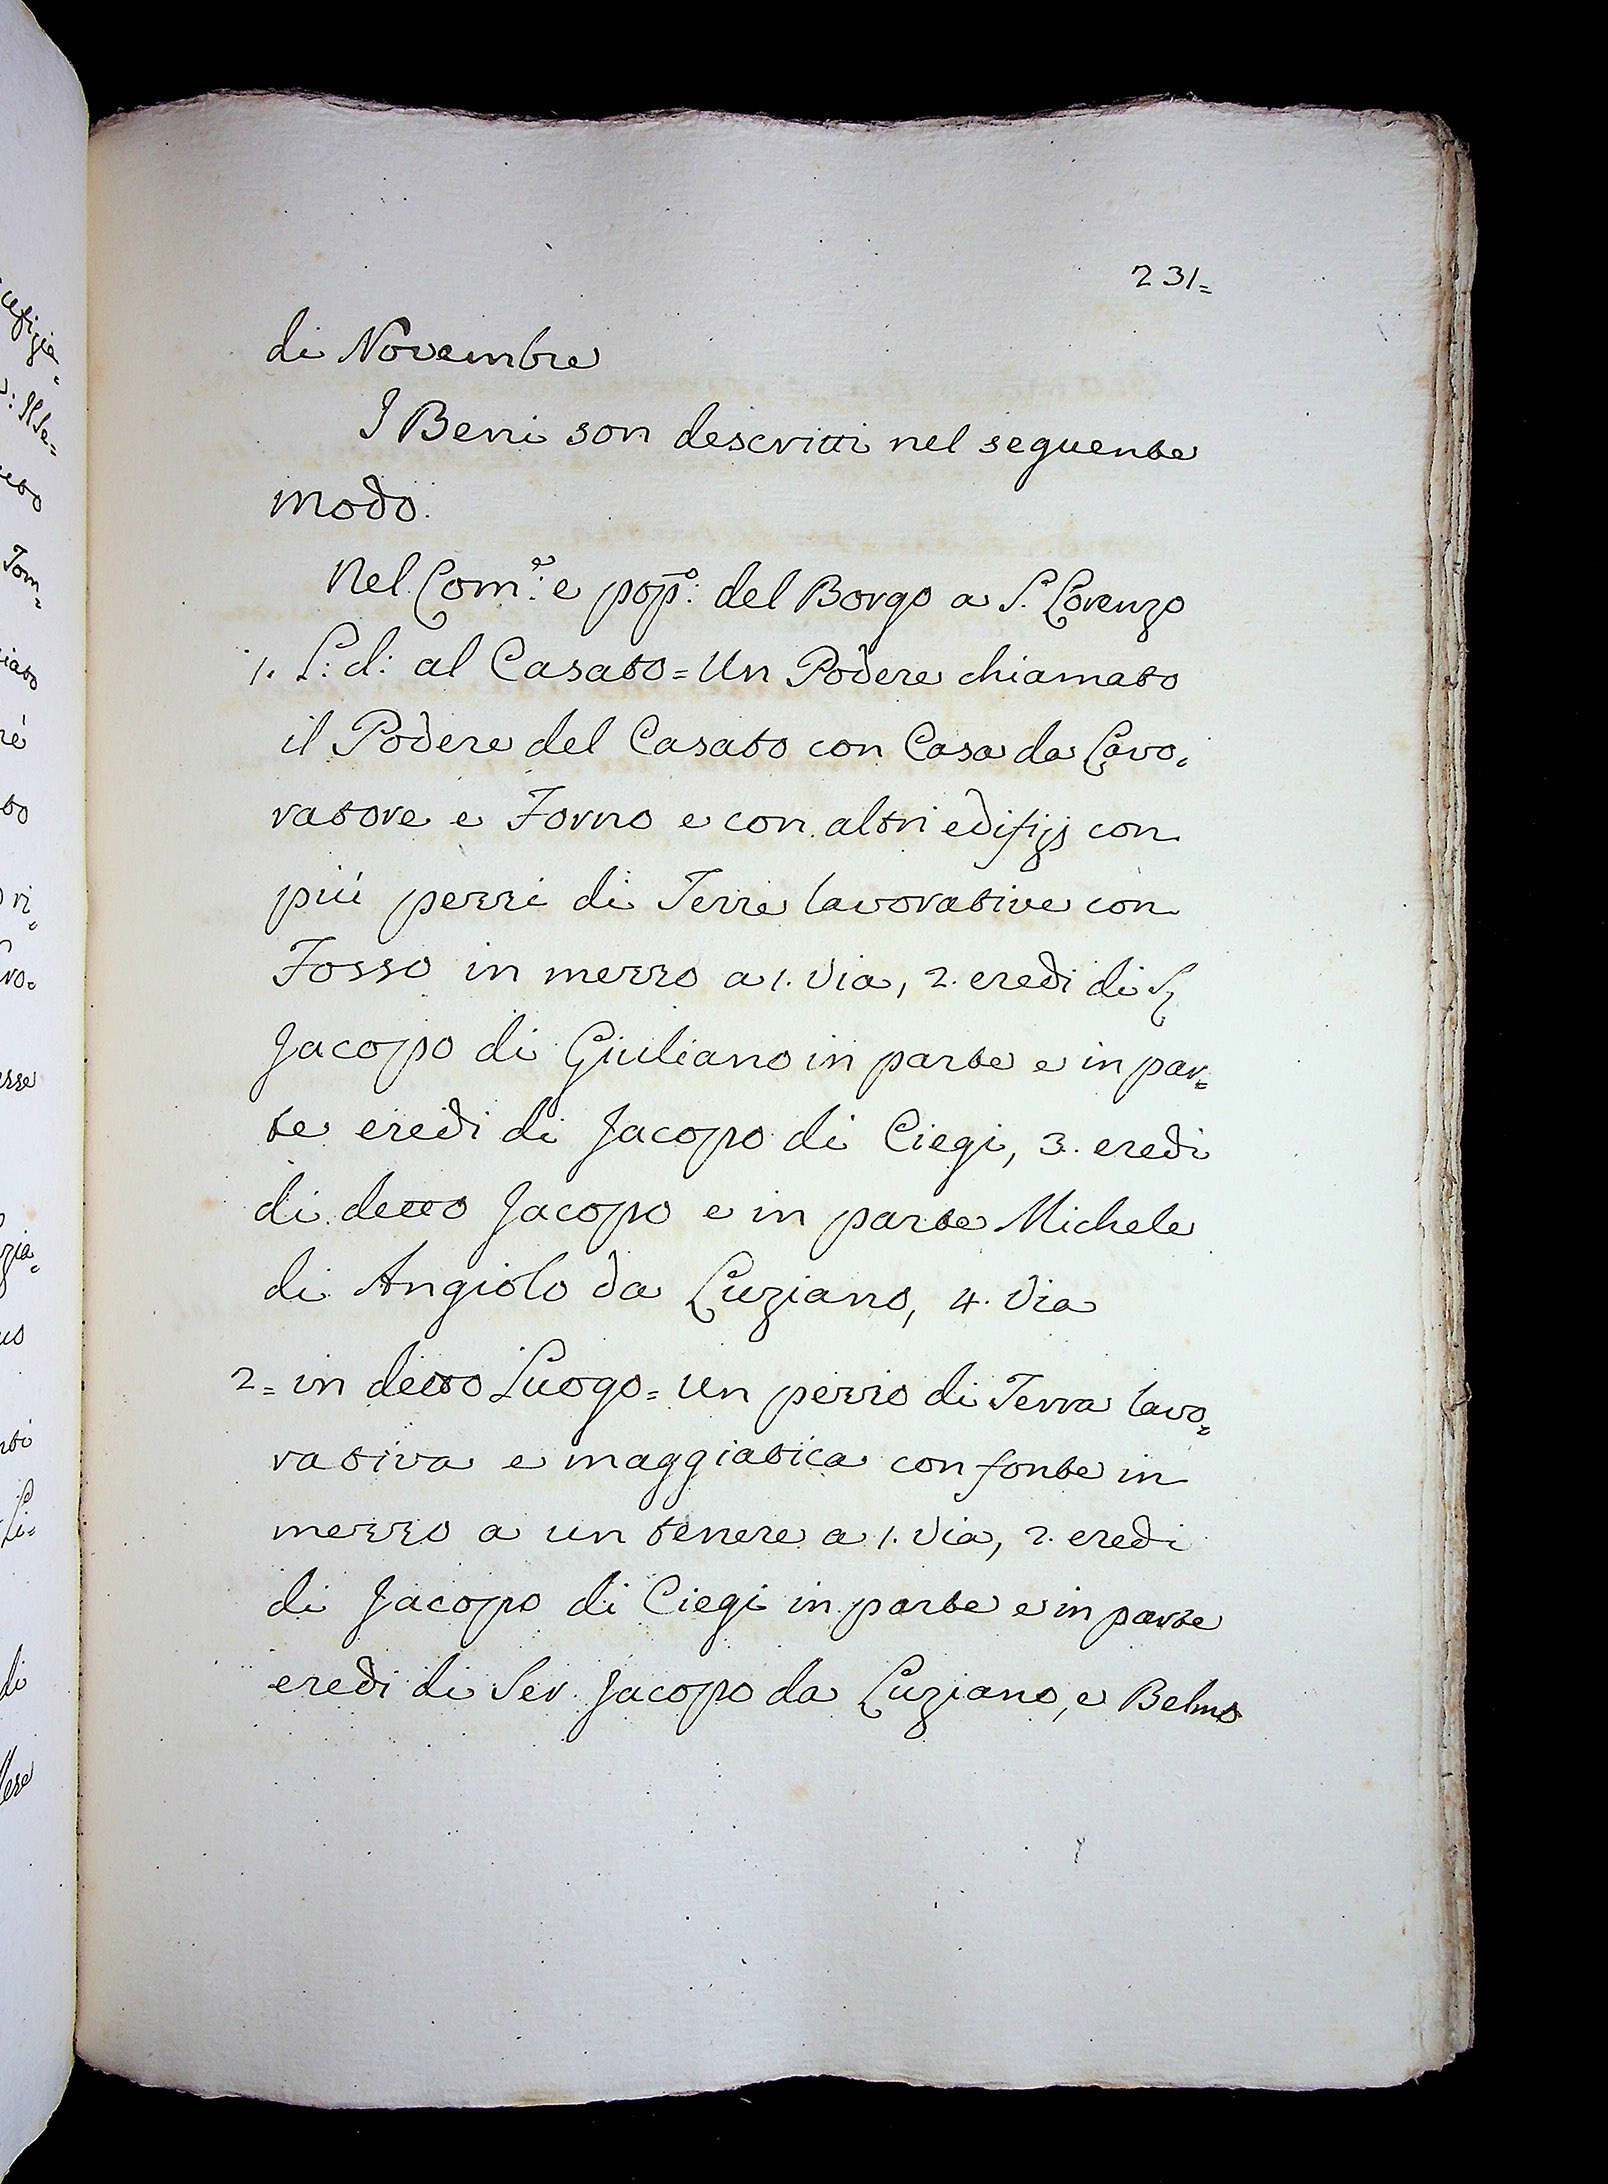 231=
di Novembre
I Beni son descritti nel seguente
modo.
Nel Com.e: e pop.o: del Borgo a S. Lorenzo
1. L: d: al Casato = Un Podere chiamato
il Podere del Casato con Casa da Lavo=
ratore e Forno e con altri edifizj con
più pezzi di Terre lavorative con
Fosso in mezzo a 1. Via, 2. eredi di
Jacopo di Giuliano in parte e in par=
te eredi di Jacopo di Ciegi, 3. eredi
di detto Jacopo e in parte Michele
di Angiolo da Luziano, 4. Via
2= in detto Luogo = Un pezzo di Terra lavo=
rativa e maggiatica con fonte in
mezzo a un tenere a 1. Via, 2. eredi
di Jacopo di Ciegi in parte e in parte
eredi di Ser Jacopo da Luziano, e Belmo